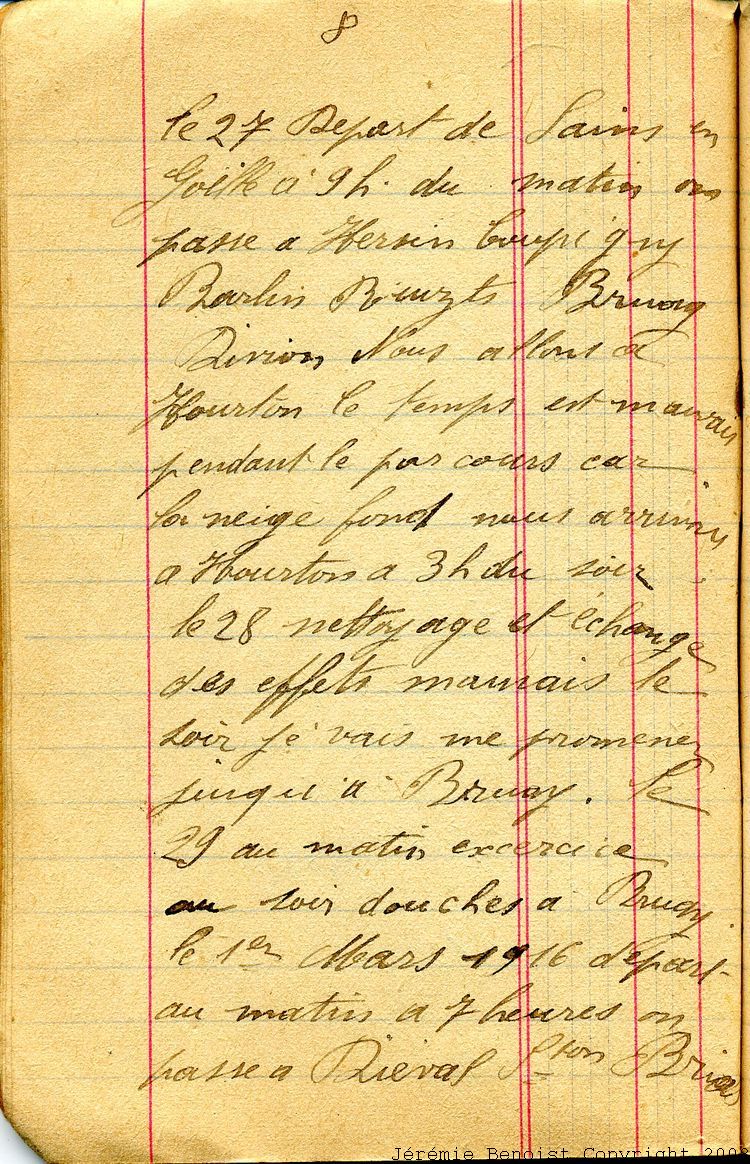 8
le 27 Depart de Sains en
Goëlle a 9h. du matin on
passe a Hersin Coupigny
Barlin Ruizts Bruay
Divion Nous allons a
Hourton le temps est mauvais
pendant le parcours car
la neige fond nous arrivons
a Hourton a 3h du soir
le 28 nettoyage et échange
des effets mauvais le
soir je vais me promener
jusqu'à Bruay. le
29 au matin excercice
au soir douches a Bruay.
le 1er Mars 1916 départ
au matin a 7 heures on
passe a Diéval Brias
Jérémie Benoist Copyright